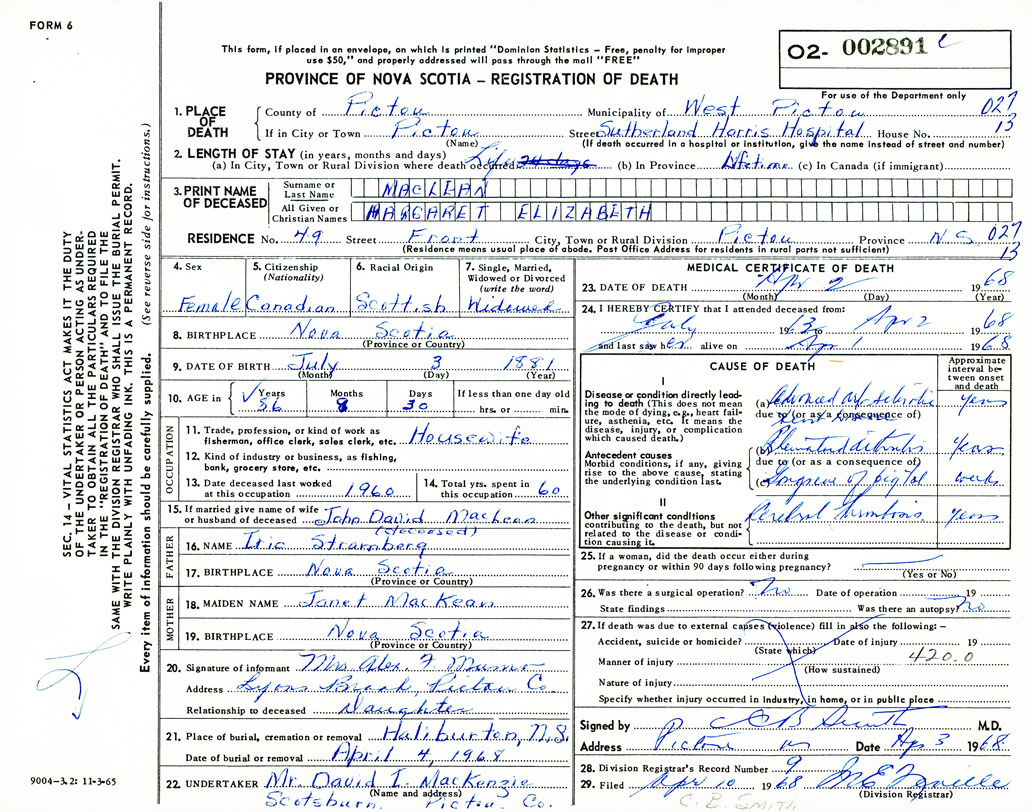 FORM 6
This form, if placed in an envelope, on which is printed "Dominion Statistics – Free, penalty for improper
use $50," and properly addressed will pass through the mail "FREE"
PROVINCE OF NOVA SCOTIA – REGISTRATION OF DEATH
O2- 002891
For use of the Department only
1. PLACE OF DEATH
County of Pictou Municipality of West Pictou 027
If in City or Town Pictou Street Sutherland Harris Hospital House No. 13
(Name) (If death occurred in a hospital or institution, give the name instead of street and number)
2. LENGTH OF STAY (in years, months and days)
(a) In City, Town or Rural Division where death occurred Life 24 days (b) In Province Lifetime (c) In Canada (if immigrant)
3. PRINT NAME OF DECEASED
Surname or Last Name MACLEAN
All Given or Christian Names MARGARET ELIZABETH
RESIDENCE No. 49 Street Front City, Town or Rural Division Pictou Province N S 027
(Residence means usual place of abode. Post Office Address for residents in rural parts not sufficient) 13
4. Sex Female
5. Citizenship (Nationality) Canadian
6. Racial Origin Scottish
7. Single, Married, Widowed or Divorced (write the word) Widowed
8. BIRTHPLACE Nova Scotia
(Province or Country)
9. DATE OF BIRTH July 3 1881
(Month) (Day) (Year)
10. AGE in Years 86 Months 8 Days 30 If less than one day old
hrs. or min.
OCCUPATION
11. Trade, profession or kind of work as fisherman, office clerk, sales clerk, etc. Housewife
12. Kind of industry or business, as fishing, bank, grocery store, etc.
13. Date deceased last worked at this occupation 1960
14. Total yrs. spent in this occupation 60
15. If married give name of wife or husband of deceased John David MacLean
(deceased)
FATHER
16. NAME Stramberg
17. BIRTHPLACE Nova Scotia
(Province or Country)
MOTHER
18. MAIDEN NAME Janet MacKean
19. BIRTHPLACE Nova Scotia
(Province or Country)
20. Signature of informant Mrs Alex. F. Munro
Address Lyons Brook, Pictou Co.
Relationship to deceased Daughter
21. Place of burial, cremation or removal Haliburton, N.S.
Date of burial or removal April 4, 1968
22. UNDERTAKER Mr. David I. MacKenzie
(Name and address)
Scotsburn, Pictou Co.
MEDICAL CERTIFICATE OF DEATH
23. DATE OF DEATH Apr 2 1968
(Month) (Day) (Year)
24. I HEREBY CERTIFY that I attended deceased from:
1963 to Apr 2 1968
and last saw her alive on Apr 1 1968
CAUSE OF DEATH
Approximate interval between onset and death
I
Disease or condition directly leading to death (This does not mean the mode of dying, e.g., heart failure, asthenia, etc. It means the disease, injury, or complication which caused death.)
(a) Advanced years
due to (or as a consequence of)
Antecedent causes
Morbid conditions, if any, giving rise to the above cause, stating the underlying condition last.
(b) years
due to (or as a consequence of)
(c) weeks
II
Other significant conditions contributing to the death, but not related to the disease or condition causing it.
Cerebral thrombosis years
25. If a woman, did the death occur either during pregnancy or within 90 days following pregnancy?
(Yes or No)
26. Was there a surgical operation? No Date of operation 19
State findings Was there an autopsy? no
27. If death was due to external causes (violence) fill in also the following:–
Accident, suicide or homicide? Date of injury 19
(State which) 420.0
Manner of injury
(How sustained)
Nature of injury
Specify whether injury occurred in industry, in home, or in public place
Signed by C B Smith M.D.
Address Pictou NS Date Apr 3 1968
28. Division Registrar's Record Number 9
29. Filed Apr 10 1968
(Division Registrar)
C. B. SMITH
SEC. 14 – VITAL STATISTICS ACT MAKES IT THE DUTY
OF THE UNDERTAKER OR PERSON ACTING AS UNDER-
TAKER TO OBTAIN ALL THE PARTICULARS REQUIRED
IN THE "REGISTRATION OF DEATH" AND TO FILE THE
SAME WITH THE DIVISION REGISTRAR WHO SHALL ISSUE THE BURIAL PERMIT.
WRITE PLAINLY WITH UNFADING INK. THIS IS A PERMANENT RECORD.
Every item of information should be carefully supplied. (See reverse side for instructions.)
9004-3.2: 11-3-65